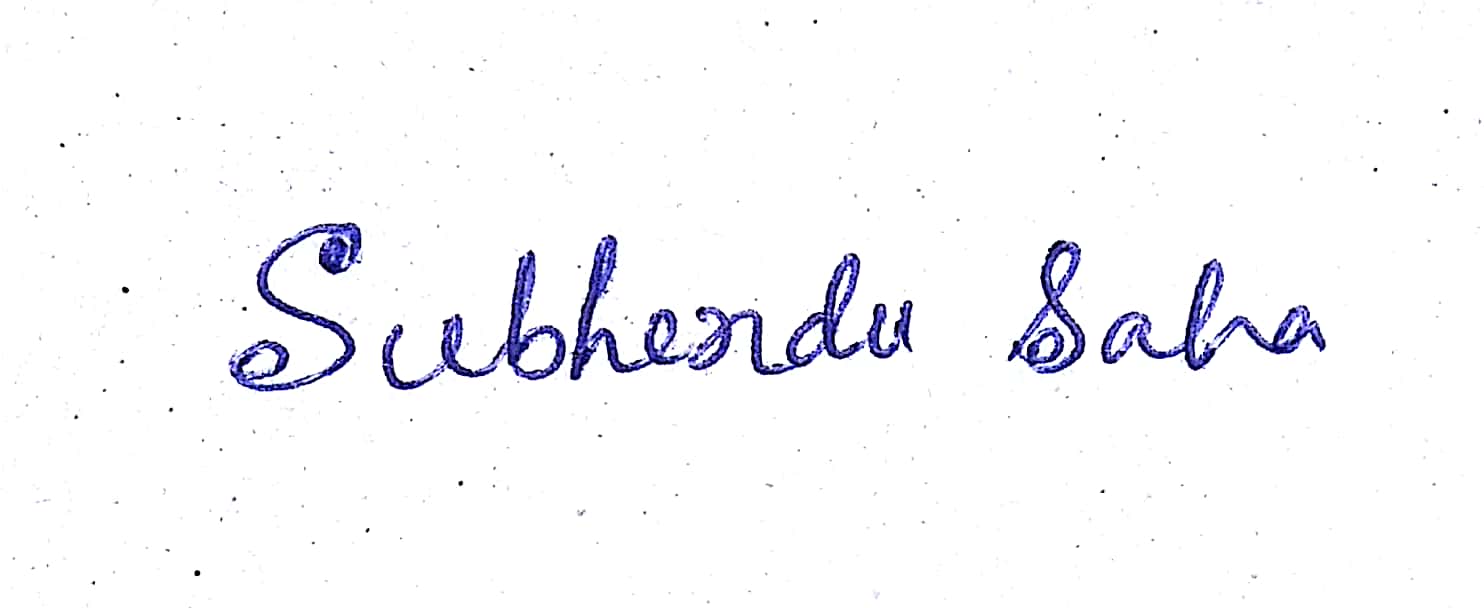 Subhendu Saha